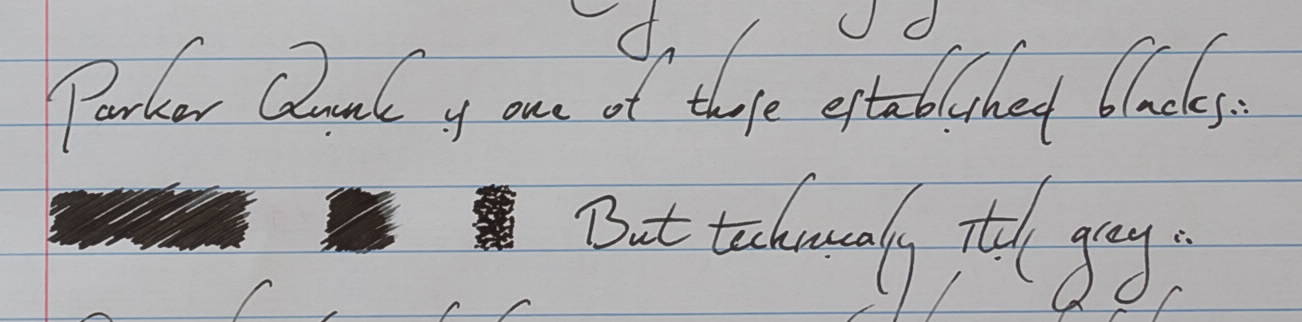 Parker Quink is one of those established blacks:.
But technically it's grey :.